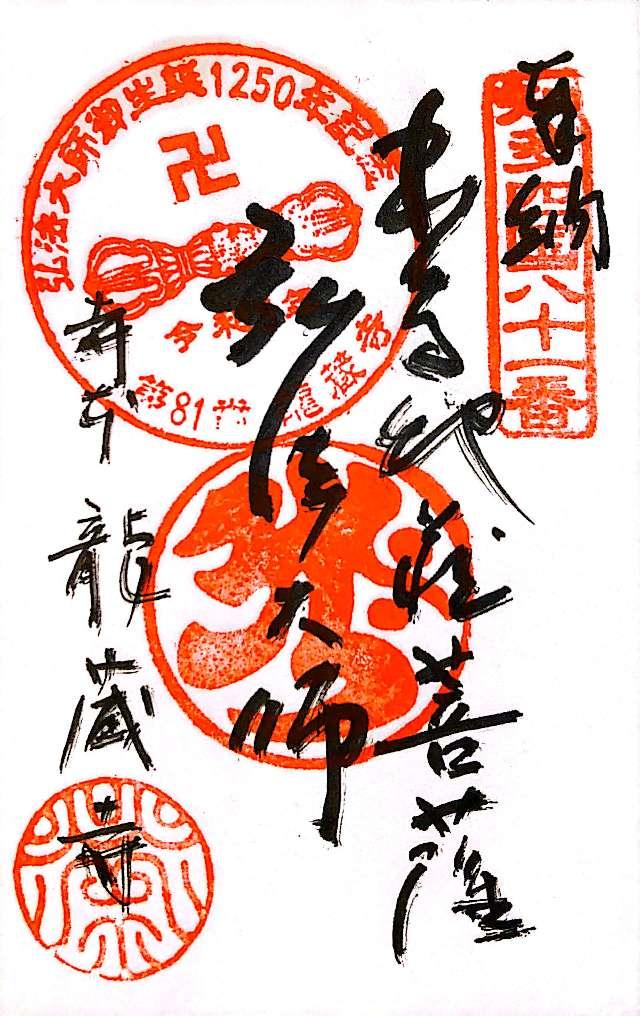 奉納
知多四国八十一番
地蔵菩薩
弘法大師
龍蔵寺
弘法大師御生誕1250年記念
卍
令和
第81番 龍蔵寺